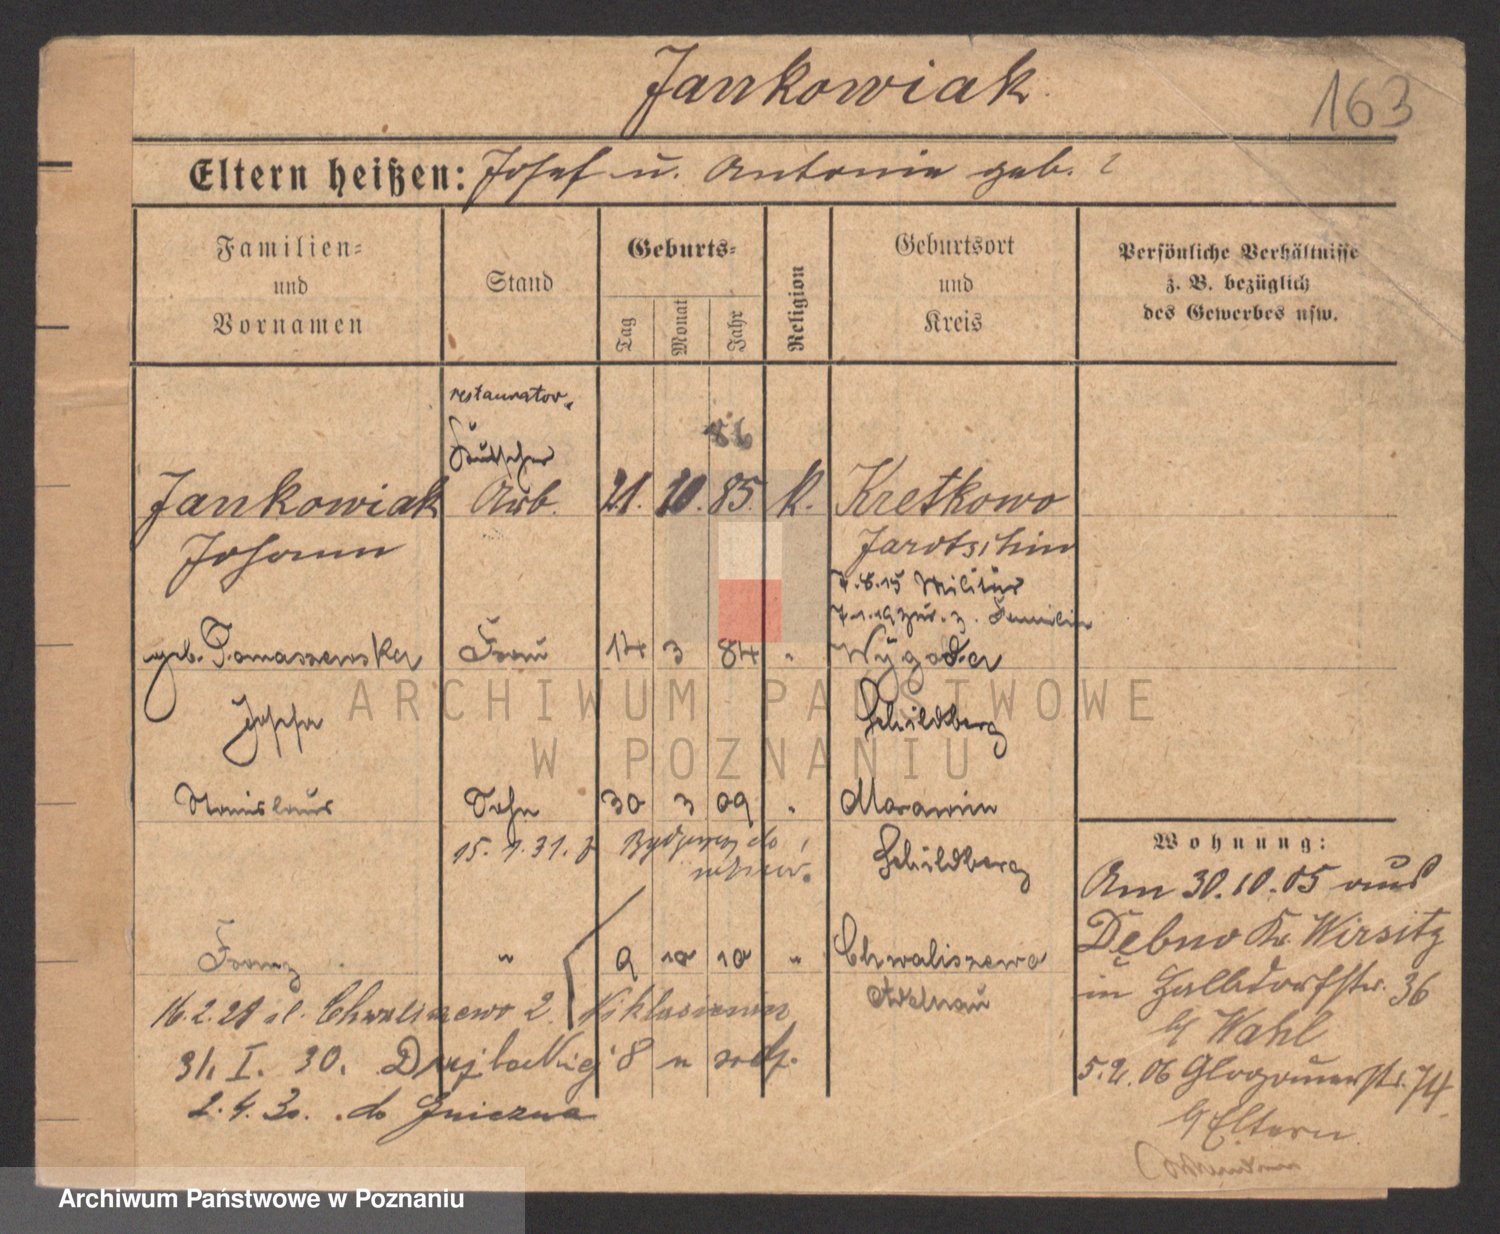 Jankowiak
163
Eltern heißen: Josef u. Antonie geb. ?
Familien-
und
Vornamen
Stand
Geburts-
Tag
Monat
Jahr
Religion
Geburtsort
und
Kreis
Persönliche Verhältnisse
z. B. bezüglich
des Gewerbes usw.
restaurator.
Kutscher
86
Jankowiak Arb. 21. 10. 85. k. Kretkowo
Johann Jarotschin
7.8.15 Militär
7.1.19 zur. z. Familie
geb. Tomaszewska Frau 14 3 84 " Wygoda
Josefa Schildberg
Stanislaus Sohn 30 3 09 " Morawin
15. 1. 31. z Bydgoszcz do
Schildberg
Franz " 9 10 10 " Chwaliszewo
Adelnau
16.2.28 ul. Chwaliszewo 2.
31. I. 30. 8
2. 4. 30. do Gniezna
Wohnung:
Am 30.10.05 aus
Dębno Kr. Wirsitz
in Halbdorfstr. 36
b/ Wahl
5.2.06 Glogauerstr. 74
b/ Eltern
ARCHIWUM PAŃSTWOWE
W POZNANIU
Archiwum Państwowe w Poznaniu